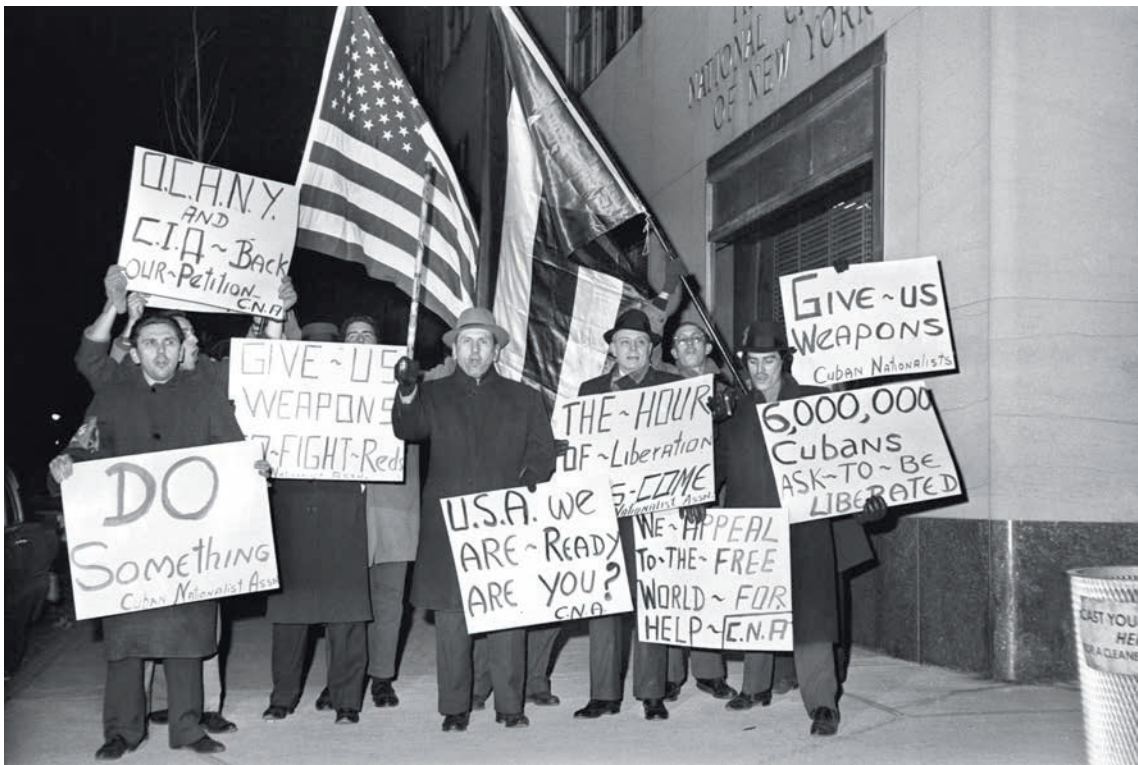 NATIONAL
OF NEW YORK
O.C.A.N.Y.
AND
C.I.A~Back
OUR~Petition~
C.N.A
GIVE~US
WEAPONS
FIGHT~Reds
DO
Something
Cuban Nationalist Assn
U.S.A. We
ARE~READY
ARE YOU?
C.N.A.
THE~HOUR
OF~Liberation
COME
Nationalist Assn.
WE~APPEAL
To~THE~FREE
WORLD~FOR
HELP~C.N.A
GIVE~US
WEAPONS
Cuban Nationalists
6,000,000
Cubans
ASK~TO~BE
LIBERATED
CAST YOU
HE
A CLEANE